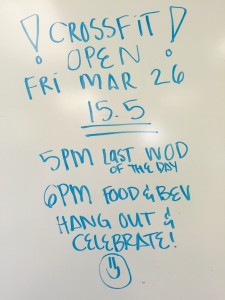 ! CROSSFIT !
OPEN
FRI MAR 26
15.5
5PM LAST WOD
OF THE DAY
6PM FOOD & BEV
HANG OUT &
CELEBRATE!